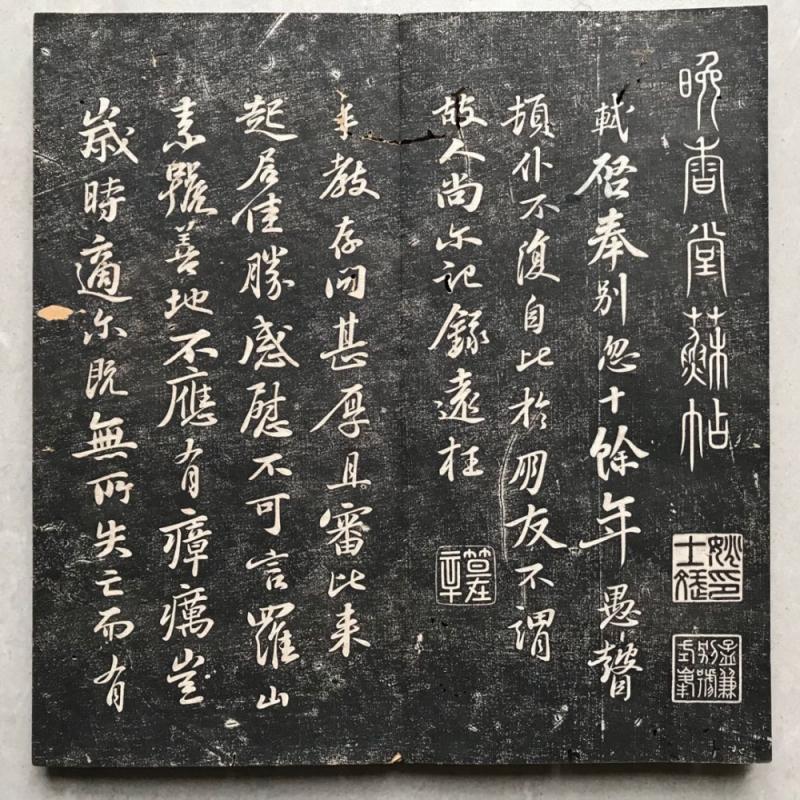 晚香堂蘇帖
軾啓奉別忽十餘年愚瞽
頓仆不復自比於朋友不謂
故人尚尔記錄遠枉
手教存問甚厚且審比来
起居佳勝感慰不可言羅山
素號善地不應有瘴癘豈
歲時適尔既無所失亡而有